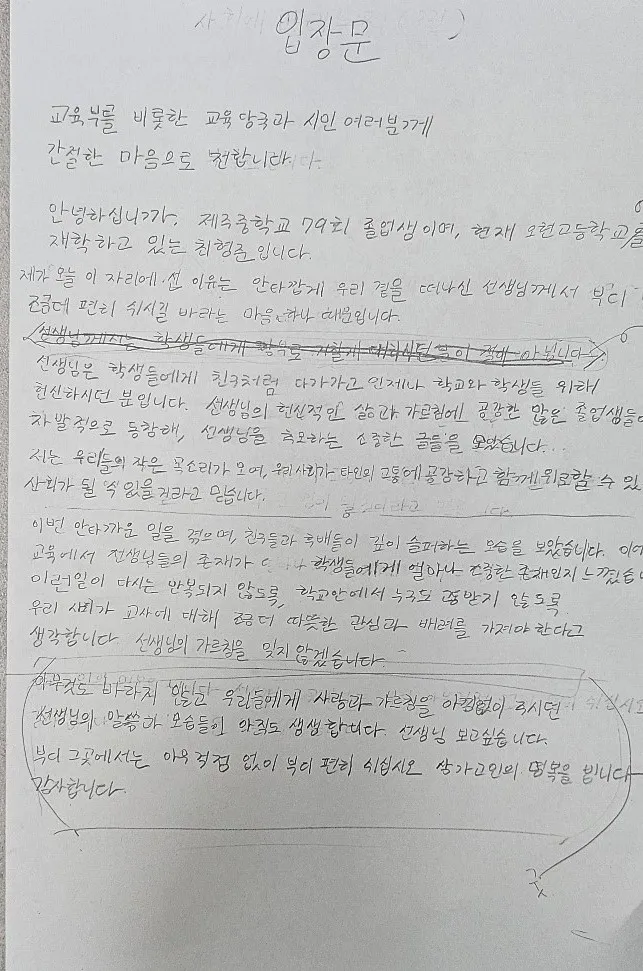 입장문
교육부를 비롯한 교육 당국과 시민 여러분께
간절한 마음으로 전합니다.
안녕하십니까, 제주중학교 79회 졸업생이며, 현재 오현고등학교를
재학하고 있는 최형준입니다.
제가 오늘 이 자리에 선 이유는 안타깝게 우리 곁을 떠나신 선생님께서 부디
조금더 편히 쉬시길 바라는 마음 하나 때문입니다.
선생님께서는 학생들에게 절대 아닙니다
선생님은 학생들에게 친구처럼 다가가고 언제나 학교와 학생들 위해
헌신하시던 분입니다. 선생님의 헌신적인 삶과 가르침에 공감한 많은 졸업생들이
자발적으로 동참해, 선생님을 추모하는 소중한 글들을 모았습니다.
저는 우리들의 작은 목소리가 모여, 우리 사회가 타인의 고통에 공감하고 함께 위로할 수 있
사회가 될 수 있을 것라고 믿습니다.
이번 안타까운 일을 겪으며, 친구들과 후배들이 깊이 슬퍼하는 모습을 보았습니다.
교육에서 선생님들의 존재가 학생들에게 얼마나 소중한 존재인지 느꼈습
이런일이 다시는 반복되지 않도록, 학교안에서 누구도 고통받지 않도록
우리 사회가 교사에 대해 조금더 따뜻한 관심과 배려를 가져야한다고
생각합니다. 선생님의 가르침을 잊지 않겠습니다.
아무것도 바라지 않고 우리들에게 사랑과 가르침을 아낌없이 주시던
선생님의 말씀하 모습들이 아직도 생생합니다. 선생님 보고싶습니다.
부디 그곳에서는 아무 걱정 없이 부디 편히 쉬십시오 삼가고인의 명복을 빕니다
감사합니다.